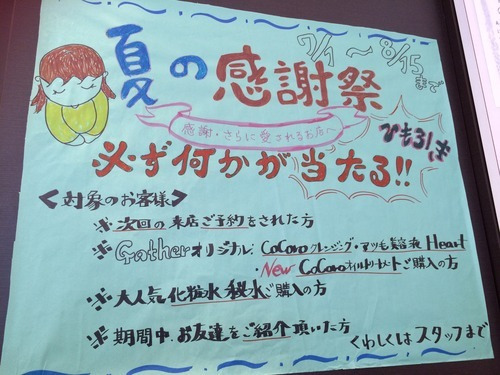 夏の感謝祭
7/1〜8/15まで
感謝・さらに愛されるお店へ
ひもろくじ
必ず何かが当たる!!
<対象のお客様>
※次回の来店ご予約をされた方
※Gatherオリジナル:CoCoroクレンジング・アツ毛美容液 Heart
・New CoCoroオイルトリートメントご購入の方
※大人気化粧水 秘水ご購入の方
※期間中、お友達をご紹介頂いた方
くわしくはスタッフまで